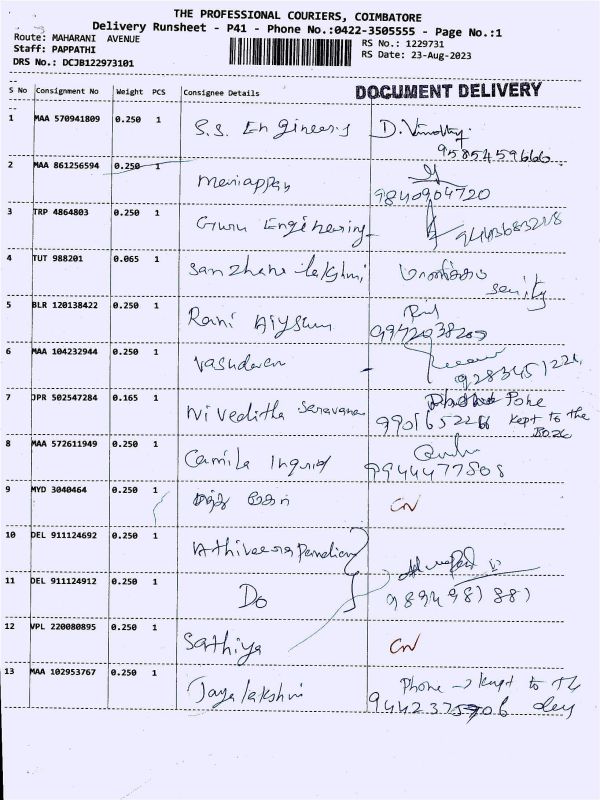 THE PROFESSIONAL COURIERS, COIMBATORE
Delivery Runsheet - P41 - Phone No.:0422-3505555 - Page No.:1
Route: MAHARANI AVENUE
RS No.: 1229731
Staff: PAPPATHI
RS Date: 23-Aug-2023
DRS No.: DCJB122973101
DOCUMENT DELIVERY
S No Consignment No Weight PCS Consignee Details
1 MAA 570941809 0.250 1 S.S. Engineers
9585459666
2 MAA 861256594 0.250 1 Mariappan
9840904720
3 TRP 4864803 0.250 1 Guru Engineering
4 TUT 988201 0.065 1
5 BLR 120138422 0.250 1 Rani
6 MAA 104232944 0.250 1 Vasudevan
7 JPR 502547284 0.165 1 Niveditha Saravana
kept to the
Box
8 MAA 572611949 0.250 1 Camila
9944477508
9 MYD 3040464 0.250 1 CN
10 DEL 911124692 0.250 1 Athiveerapandian
11 DEL 911124912 0.250 1 Do
9894981881
12 VPL 220080895 0.250 1 Sathiya CN
13 MAA 102953767 0.250 1 Jayalakshmi Phone → kept to